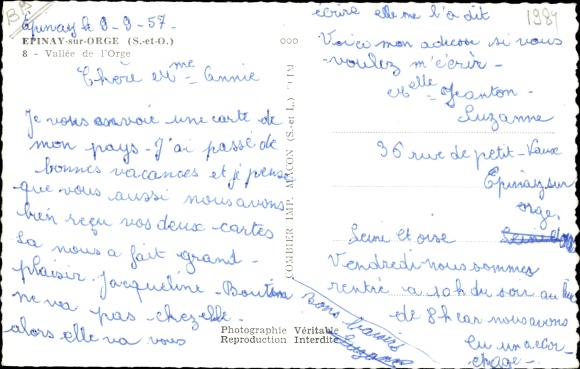 Epinay le 9-9-57-
EPINAY-sur-ORGE (S.-et-O.)
8 - Vallée de l'Orge
Chère Mme Annie
Je vous envoie une carte de
mon pays - J'ai passé de
bonnes vacances et je pense
que vous aussi nous avons
bien reçu vos deux cartes
Sa nous a fait grand -
plaisir. Jacqueline - Boutin
ne va pas chez elle -
alors elle va vous
écrire elle me l'a dit
Voici mon adresse si vous
voulez m'écrir -
Melle Jeanton -
Suzanne
36 rue de petit-Vaux
Epinay sur
orge.
Seine et oise
Vendredi nous sommes
rentré a 10h du soir au lieu
de 8h car nous avons
eu un accro-
chage -
Bons baisers
Suzanne
COMBIER IMP. MACON (S.-et-L.)
Photographie Véritable
Reproduction Interdite
1984